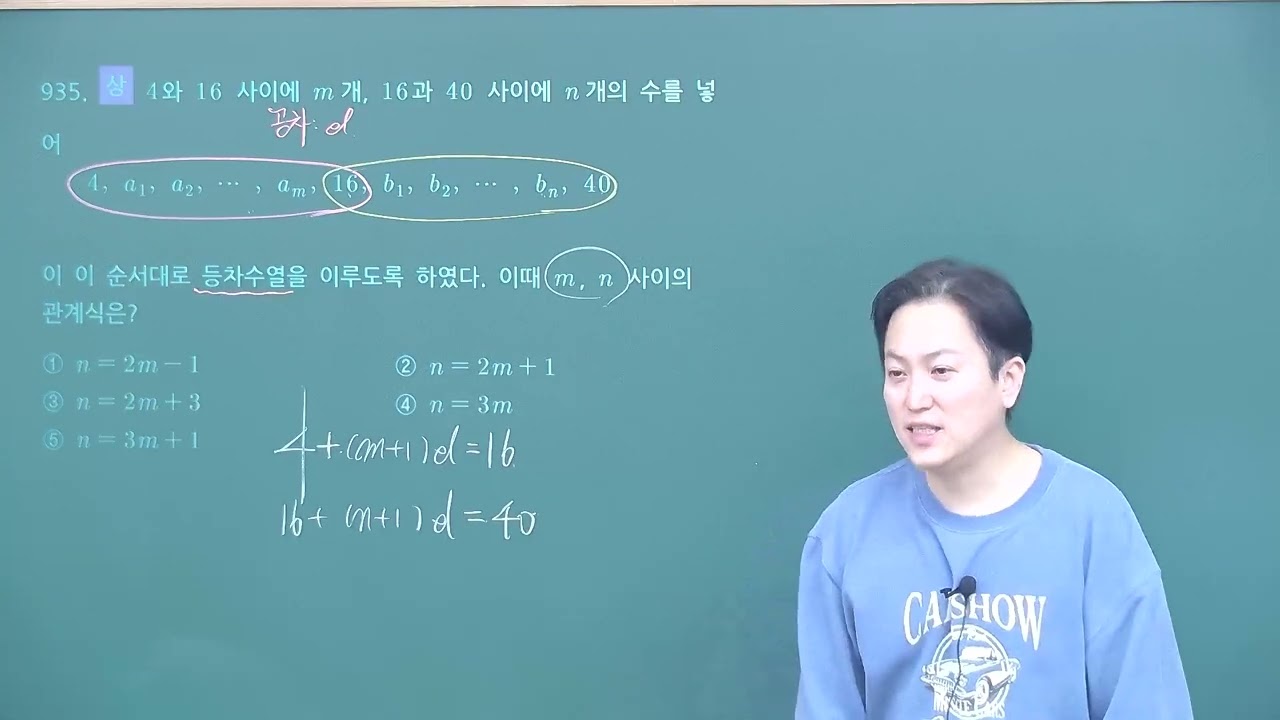 935. 상 4와 16 사이에 m개, 16과 40 사이에 n개의 수를 넣
공차: d
어
4, a₁, a₂, ⋯ , aₘ, 16, b₁, b₂, ⋯ , bₙ, 40
이 이 순서대로 등차수열을 이루도록 하였다. 이때 m, n 사이의
관계식은?
① n = 2m − 1 ② n = 2m + 1
③ n = 2m + 3 ④ n = 3m
⑤ n = 3m + 1
4 + (m+1)d = 16
16 + (n+1)d = 40
CA SHOW